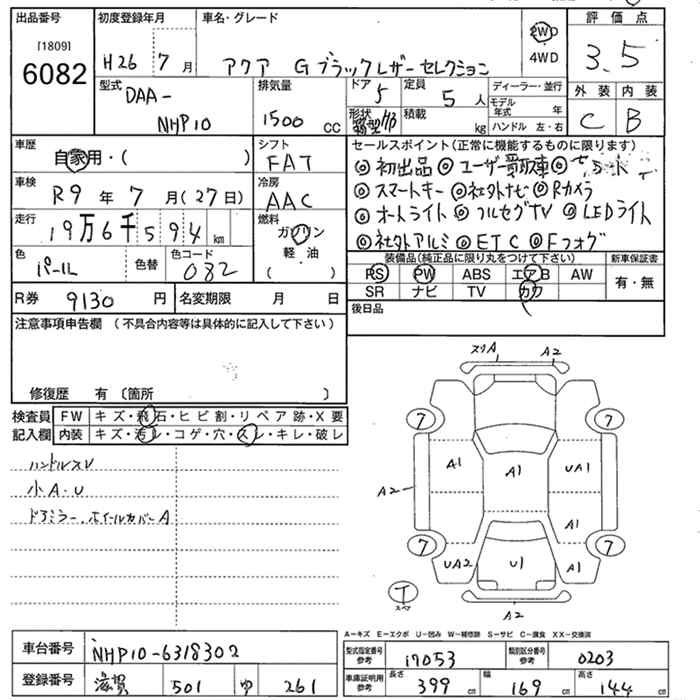 出品番号 初度登録年月 車名・グレード 評価点
[1809]
6082 H26 7月 アクア G ブラックレザーセレクション 2WD 4WD 3.5
型式 DAA- NHP10 排気量 1500 CC ドア 5 定員 5人 ディーラー・並行 外装 内装
形状 箱型 H/B 積載 kg モデル年式 年 C B
ハンドル 左・右
車歴 自家用・( ) シフト FAT セールスポイント(正常に機能するものに限ります)
◎初出品 ◎ユーザー買取車
車検 R9年7月(27日) 冷房 AAC ◎スマートキー ◎社外ナビ ◎Rカメラ
走行 19万6千594km 燃料 ガソリン 軽・油 ( ) ◎オートライト ◎フルセグTV ◎LEDライト
◎社外アルミ ◎ETC ◎Fフォグ
色 パール 色替 色コード 082 装備品(純正品に限り丸をつけて下さい) 新車保証書
RS PW ABS エアB AW 有・無
SR ナビ TV カワ
R券 9130円 名変期限 月 日 後日品
注意事項申告欄 (不具合内容等は具体的に記入して下さい)
修復歴 有 〔箇所 〕
検査員 FW キズ・飛石・ヒビ割・リペア跡・X要
記入欄 内装 キズ・汚レ・コゲ・穴・スレ・キレ・破レ
ハンドルスレ
小A・U
ドアミラー、ホイールカバーA
スリA A2
7 7
A1 A1 UA1
A2 A1
7 7
UA2 U1 A1
T スペア
A2
A−キズ E−エクボ U−凹み W−補修跡 S−サビ C−腐食 XX−交換済
車台番号 NHP10-6318302 型式指定番号 参考 17053 類別区分番号 参考 0203
登録番号 滋賀 501 ゆ 261 車庫証明用 参考 長さ 399cm 幅 169cm 高さ 144cm